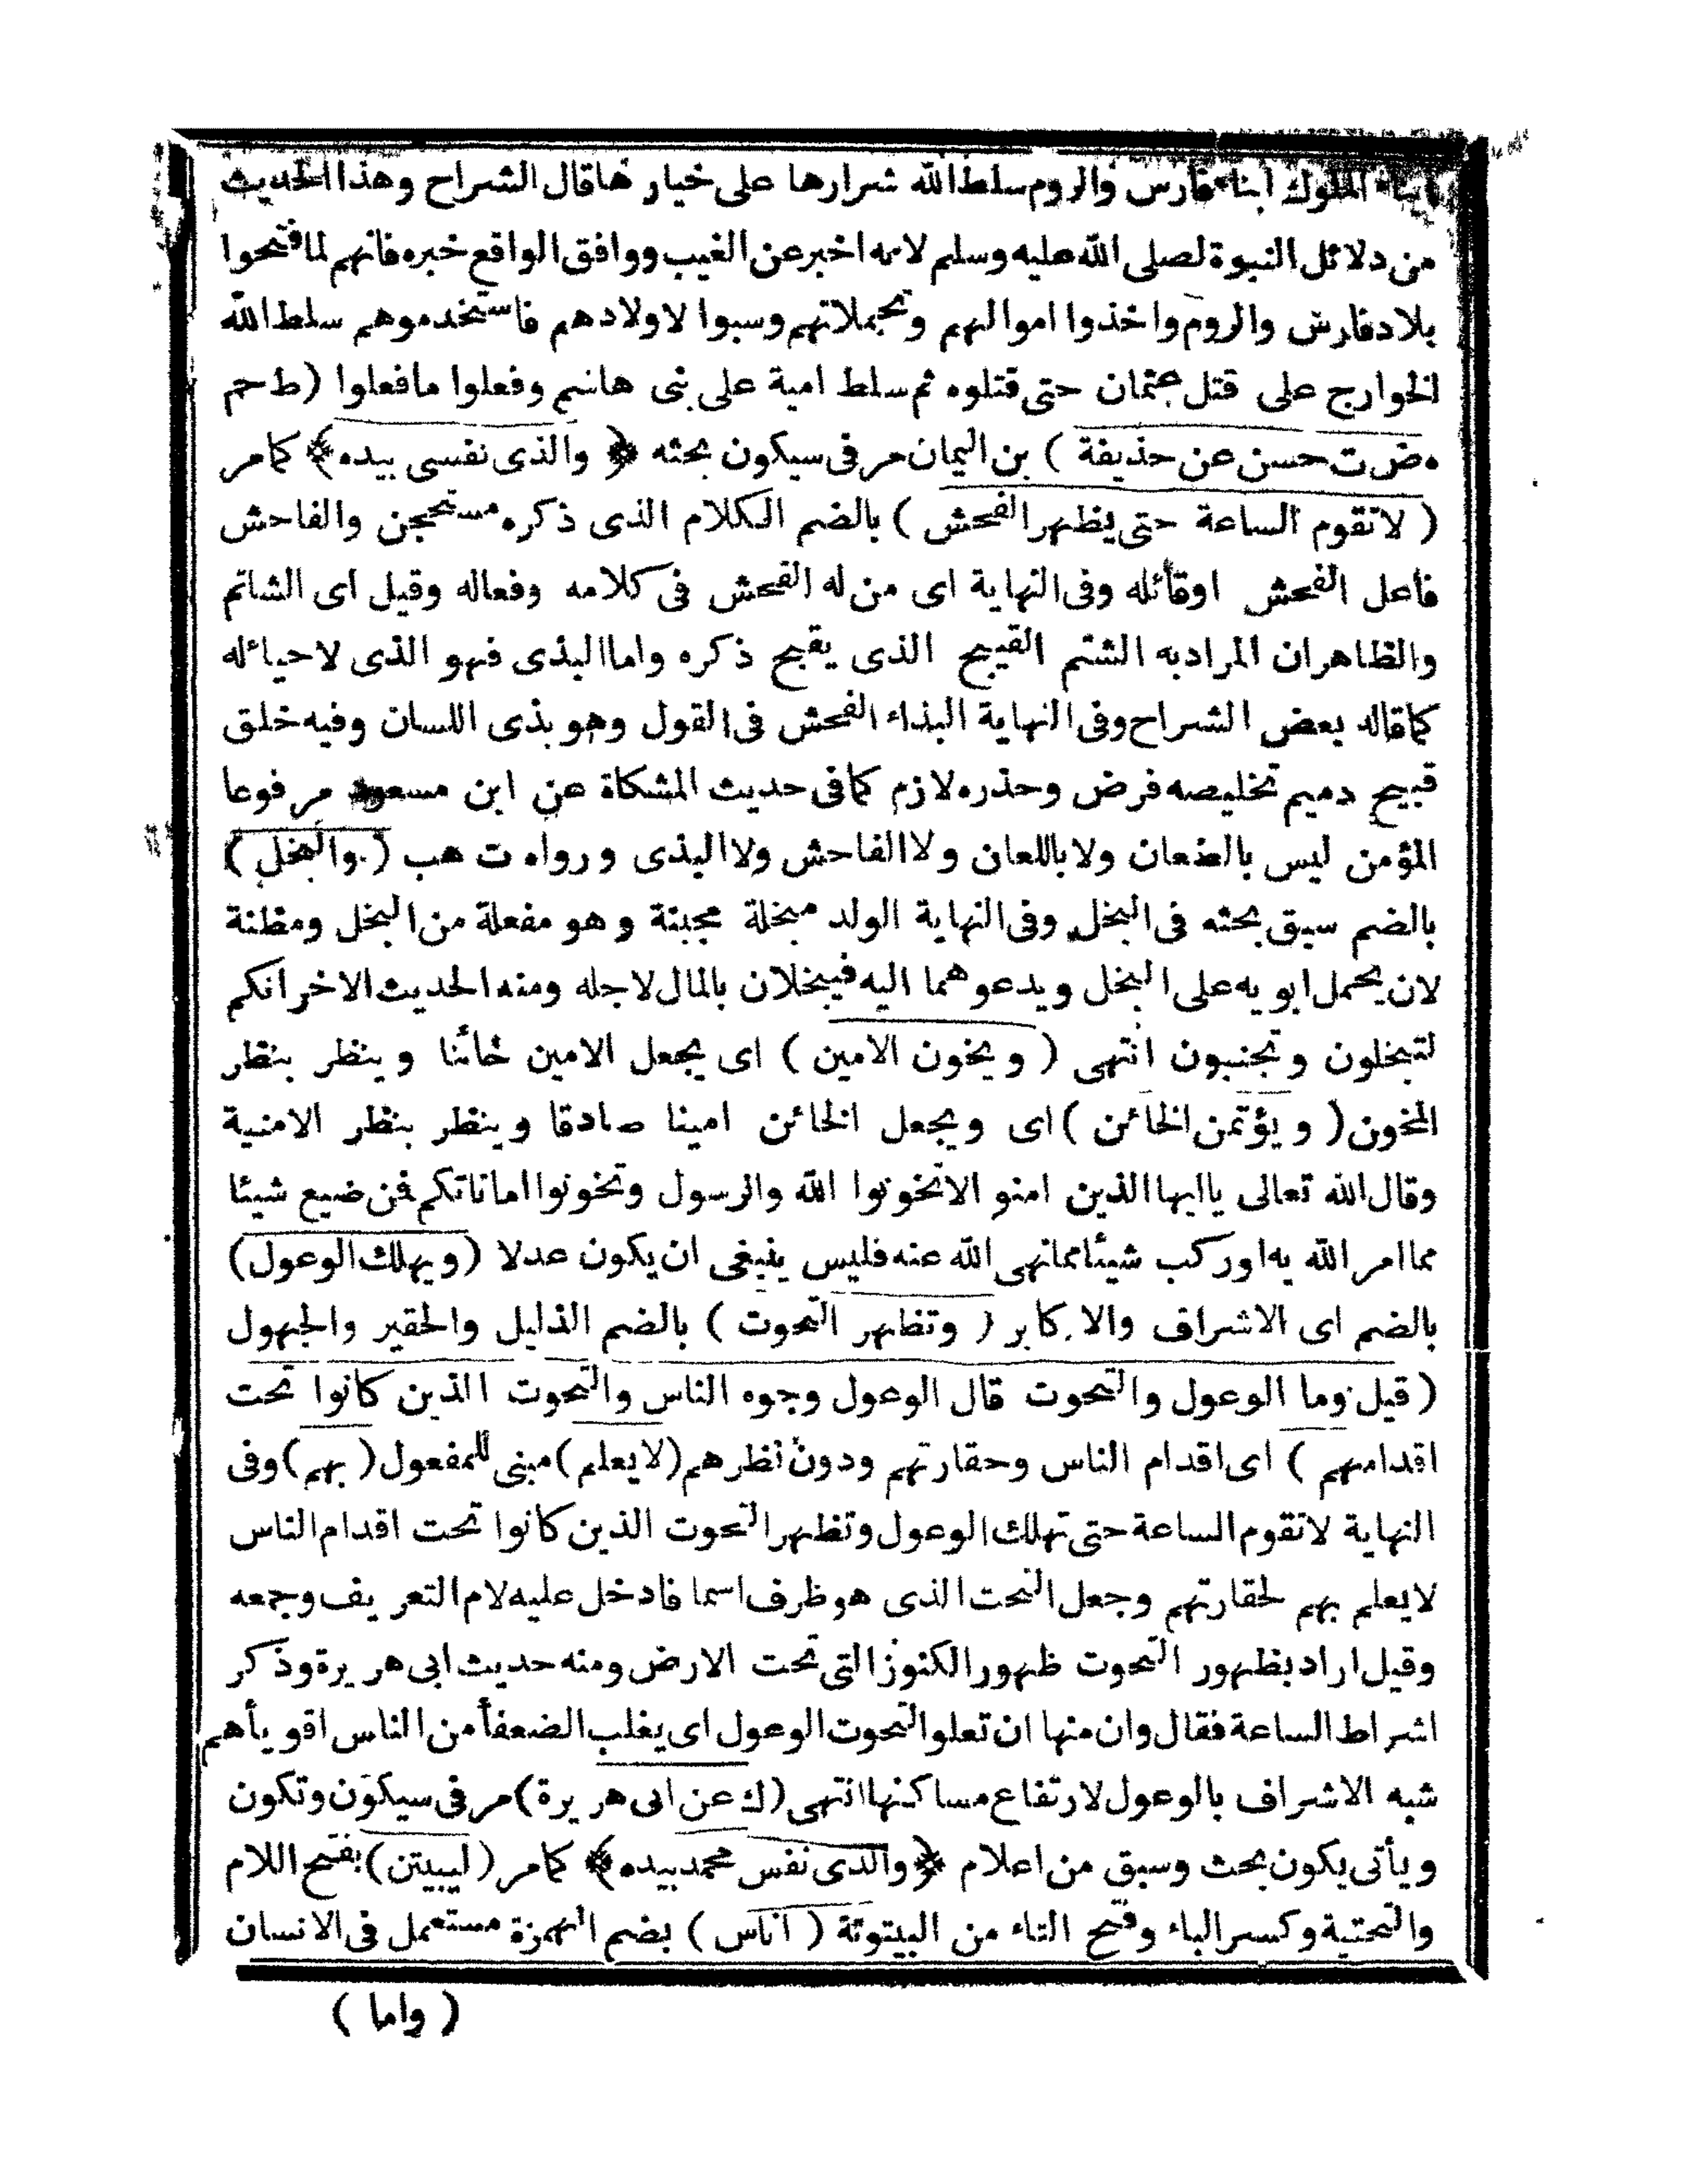 ابناء الملوك ابناء فارس والروم سلط الله شرارها على خيارها قال الشراح وهذا الحديث
من دلائل النبوة لصلى الله عليه وسلم لانه اخبر عن الغيب ووافق الواقع خبره فانهم لما فتحوا
بلاد فارس والروم واخذوا اموالهم وتجملاتهم وسبوا لاولادهم فاستخدموهم سلط الله
الخوارج على قتل عثمان حتى قتلوه ثم سلط امية على بنى هاشم وفعلوا ما فعلوا (ط حم
ه ض ت حسن عن حذيفة) بن اليمان مر فى سيكون بحثه ﴿والذى نفسى بيده﴾ كما مر
(لا تقوم الساعة حتى يظهر الفحش) بالضم الكلام الذى ذكره مستهجن والفاحش
فاعل الفحش او قائله وفى النهاية اى من له الفحش فى كلامه وفعاله وقيل اى الشاتم
والظاهر ان المراد به الشتم القبيح الذى يقبح ذكره واما البذى فهو الذى لا حياء له
كما قاله بعض الشراح وفى النهاية البذاء الفحش فى القول وهو بذى اللسان وفيه خلق
قبيح دميم تخليصه فرض وحذره لازم كما فى حديث المشكاة عن ابن مسعود مرفوعا
المؤمن ليس بالطعان ولا باللعان ولا الفاحش ولا البذى ورواه ت هب (والبخل)
بالضم سبق بحثه فى البخل وفى النهاية الولد مبخلة مجبنة وهو مفعلة من البخل ومظنة
لان يحمل ابويه على البخل ويدعوهما اليه فيبخلان بالمال لاجله ومنه الحديث الاخر انكم
لتبخلون وتجنبون انتهى (ويخون الامين) اى يجعل الامين خائنا وينظر بنظر
المخون (ويؤتمن الخائن) اى ويجعل الخائن امينا صادقا وينظر بنظر الامنية
وقال الله تعالى يا ايها الذين امنو الا تخونوا الله والرسول وتخونوا اماناتكم فمن ضيع شيئا
مما امر الله به او ركب شيئا مما نهى الله عنه فليس ينبغى ان يكون عدلا (ويهلك الوعول)
بالضم اى الاشراف والاكابر (وتظهر التحوت) بالضم الذليل والحقير والجهول
(قيل وما الوعول والتحوت قال الوعول وجوه الناس والتحوت الذين كانوا تحت
اقدامهم) اى اقدام الناس وحقارتهم ودون نظرهم (لا يعلم) مبنى للمفعول (بهم) وفى
النهاية لا تقوم الساعة حتى تهلك الوعول وتظهر التحوت الذين كانوا تحت اقدام الناس
لا يعلم بهم لحقارتهم وجعل التحت الذى هو ظرف اسما فادخل عليه لام التعريف وجمعه
وقيل اراد بظهور التحوت ظهور الكنوز التى تحت الارض ومنه حديث ابى هريرة وذكر
اشراط الساعة فقال وان منها ان تعلوا التحوت الوعول اى يغلب الضعفأ من الناس اقويأهم
شبه الاشراف بالوعول لارتفاع مساكنها انتهى (ك عن ابى هريرة) مر فى سيكون وتكون
ويأتى يكون بحث وسبق من اعلام ﴿والذى نفس محمد بيده﴾ كما مر (ليبيتن) بفتح اللام
والتحتية وكسر الباء وفتح التاء من البيتوتة (اناس) بضم الهمزة مستعمل فى الانسان
(واما)